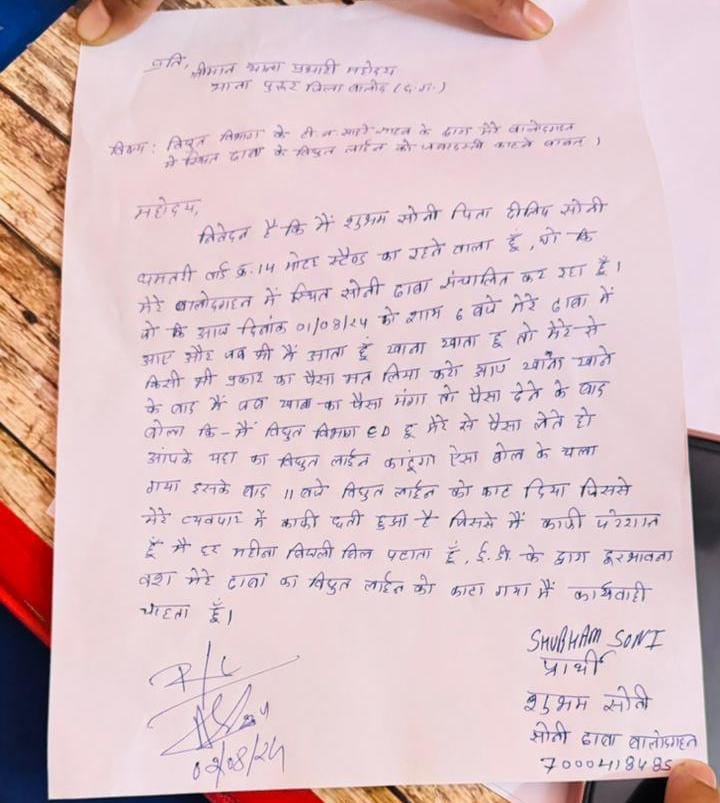 प्रति,
श्रीमान थाना प्रभारी महोदय
थाना पुरूर जिला बालोद (छ.ग.)
विषय : विद्युत विभाग के के द्वारा मेरे बालोदगहन
में स्थित ढाबा के विद्युत लाईन को जबरदस्ती काटने बाबत।
महोदय,
निवेदन है कि मैं शुभम सोनी पिता दीलिप सोनी
धमतरी वार्ड क्र. 14 मोटर स्टैण्ड का रहने वाला हूँ, जो कि
मेरे बालोदगहन में स्थित सोनी ढाबा संचालित कर रहा हूँ।
जो कि आज दिनांक 01/08/24 को शाम 6 बजे मेरे ढाबा में
आए और जब भी मैं आता हूँ खाना खाता हू तो मेरे से
किसी भी प्रकार का पैसा मत लिया करो आए खाना खाने
के बाद मैं जब खाना का पैसा मंगा तो पैसा देने के बाद
बोला कि - मैं विद्युत विभाग ED हू मेरे से पैसा लेते हो
आपके यहा का विद्युत लाईन काटूंगा ऐसा बोल के चला
गया इसके बाद 11 बजे विद्युत लाईन को काट दिया जिससे
मेरे व्यवपार में काफी छती हुआ है जिससे मैं काफी परेशान
हूँ मैं हर महीना बिजली बिल पटाता हूँ, ई.डी. के द्वारा दूरभावना
वश मेरे ढाबा का विद्युत लाईन को काटा गया मैं कार्यवाही
चाहता हूँ।
SHUBHAM SONI
प्रार्थी
शुभम सोनी
सोनी ढाबा बालोदगहन
7000418485
02/08/24